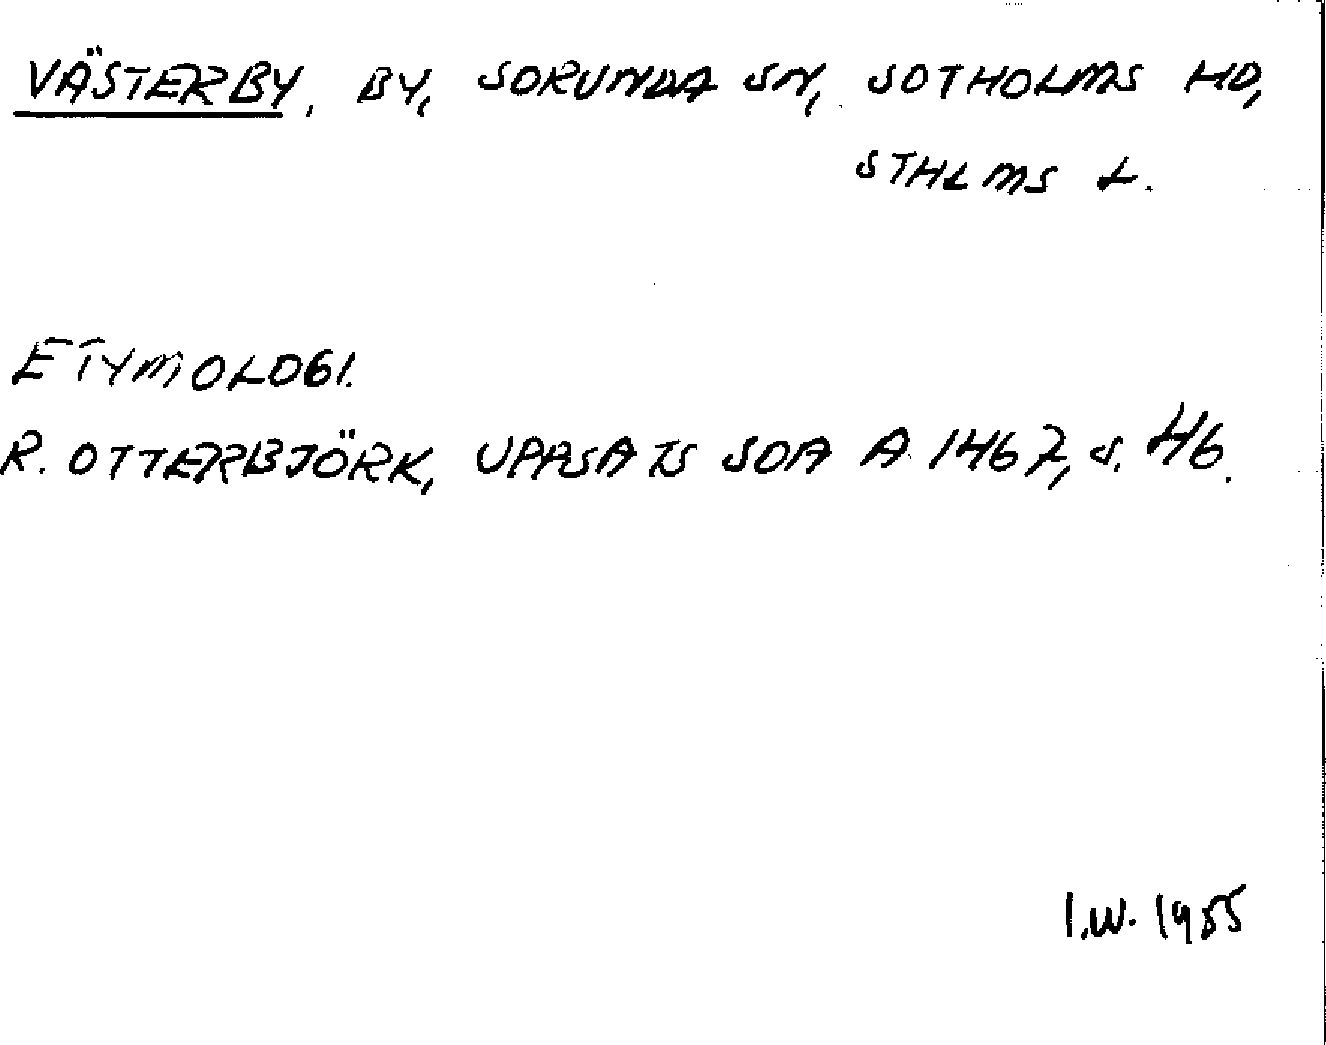 VÄSTERBY, BY, SORUNDA SN, SOTHOLMS HD,
STHLMS L.
ETYMOLOGI.
R. OTTERBJÖRK, UPPSATS SOA A 1467, S. 46.
I.W. 1955